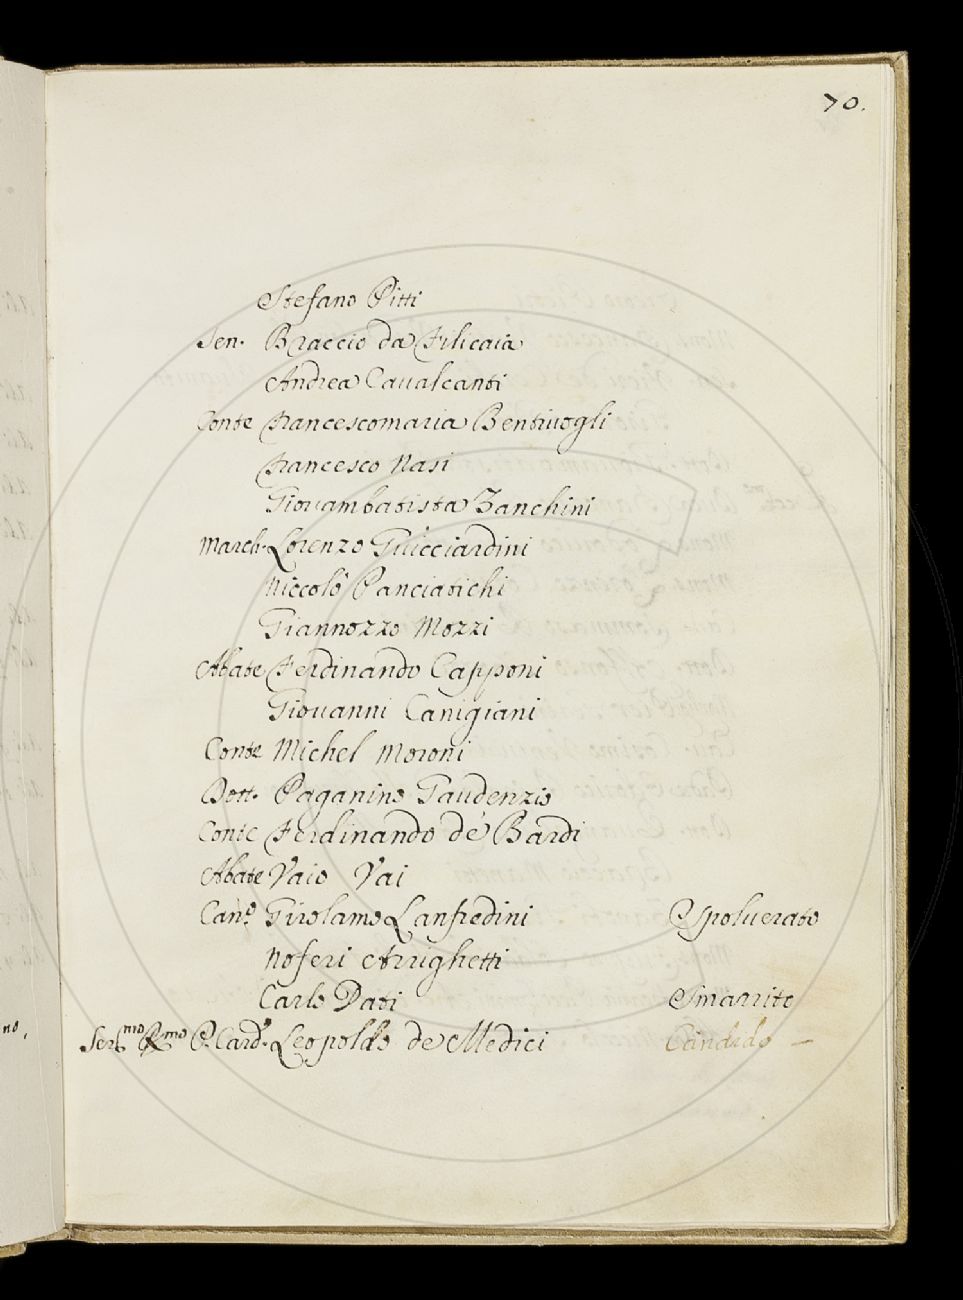 70.
Stefano Pitti
Sen. Braccio da Filicaia
Andrea Caualcanti
Conte Francescomaria Bentiuogli
Francesco Nasi
Giouambatista Zanchini
March. Lorenzo Guicciardini
Niccolò Panciatichi
Giannozzo Mozzi
Abate Ferdinando Capponi
Giouanni Canigiani
Conte Michel Moroni
Dott. Paganino Gaudenzio
Conte Ferdinando de' Bardi
Abate Vaio Vai
Can.º Girolamo Lanfredini Spoluerato
Noferi Arrighetti
Carlo Dati Smarrito
Ser.mo Rmo P. Card. Leopoldo de Medici Candido